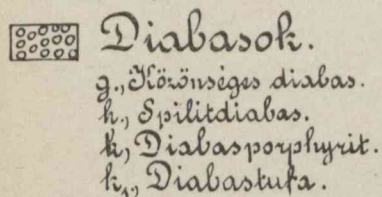 Diabasok.
g., Közönséges diabas.
h., Spilitdiabas.
k, Diabasporphyrit.
k₁, Diabastufa.